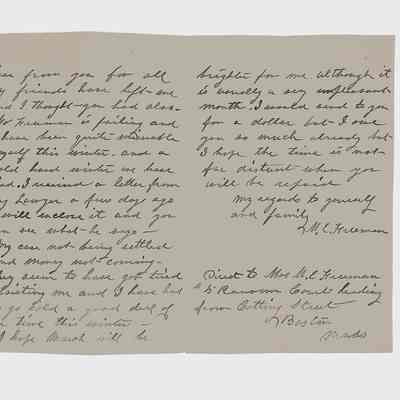 from you for all
friends have left me
I thought you had also
Freeman is failing and
have been quite miserable
myself this winter. and a
cold hard winter we have
had, I received a letter from
my lawyer a few days ago
will enclose it, and you
can see what he says —
my case not being settled
and money not coming —
they seem to have got tired
visiting me and I have had
to go hold a good deal of
time this winter —
I hope March will be
brighter for me although it
is usually a very unpleasant
month I would send to you
for a dollar but I owe
you so much already but
I hope the time is not
far distant when you
will be repaid
my regards to yourself
and family
M. C. Freeman
Direct to Mrs M. C. Freeman
Ransom Court leading
from Cotting Street
Boston
Mass